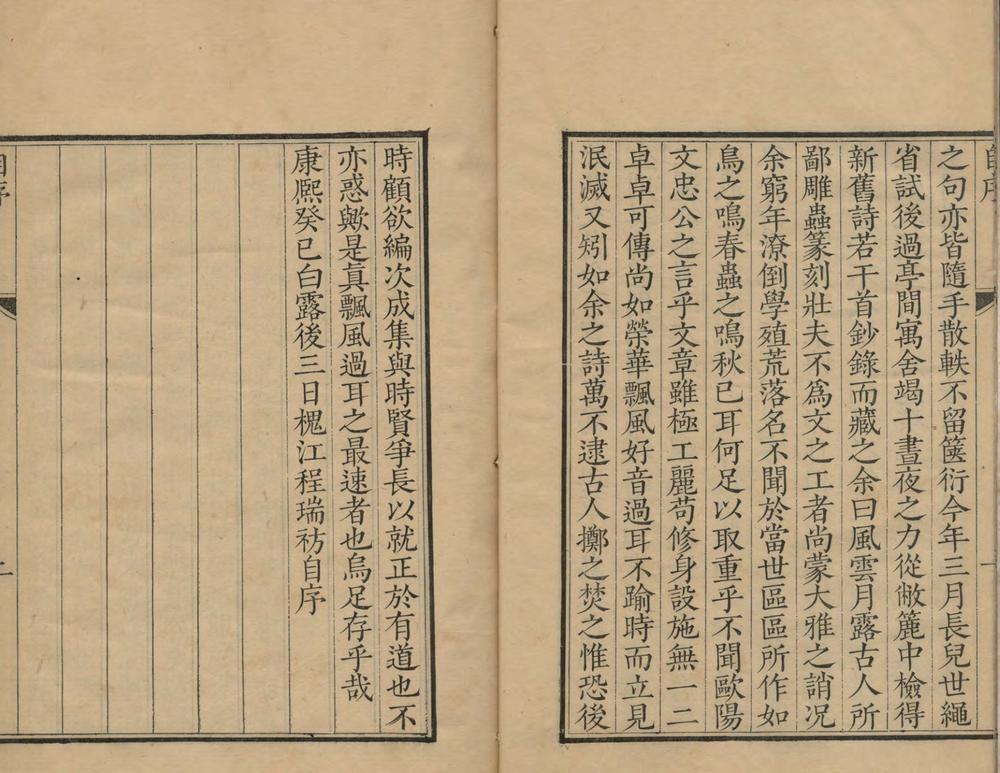 自序
之句亦皆隨手散軼不留篋衍今年三月長兒世繩
省試後過亭間寓舍竭十晝夜之力從敝簏中檢得
新舊詩若干首鈔錄而藏之余曰風雲月露古人所
鄙雕蟲篆刻壯夫不爲文之工者尚蒙大雅之誚况
余窮年潦倒學殖荒落名不聞於當世區區所作如
鳥之鳴春蟲之鳴秋已耳何足以取重乎不聞歐陽
文忠公之言乎文章雖極工麗苟修身設施無一二
卓卓可傳尚如榮華飄風好音過耳不踰時而立見
泯滅又矧如余之詩萬不逮古人擲之焚之惟恐後
時顧欲編次成集與時賢爭長以就正於有道也不
亦惑歟是真飄風過耳之最速者也烏足存乎哉
康熙癸巳白露後三日槐江程瑞祊自序
自序
二